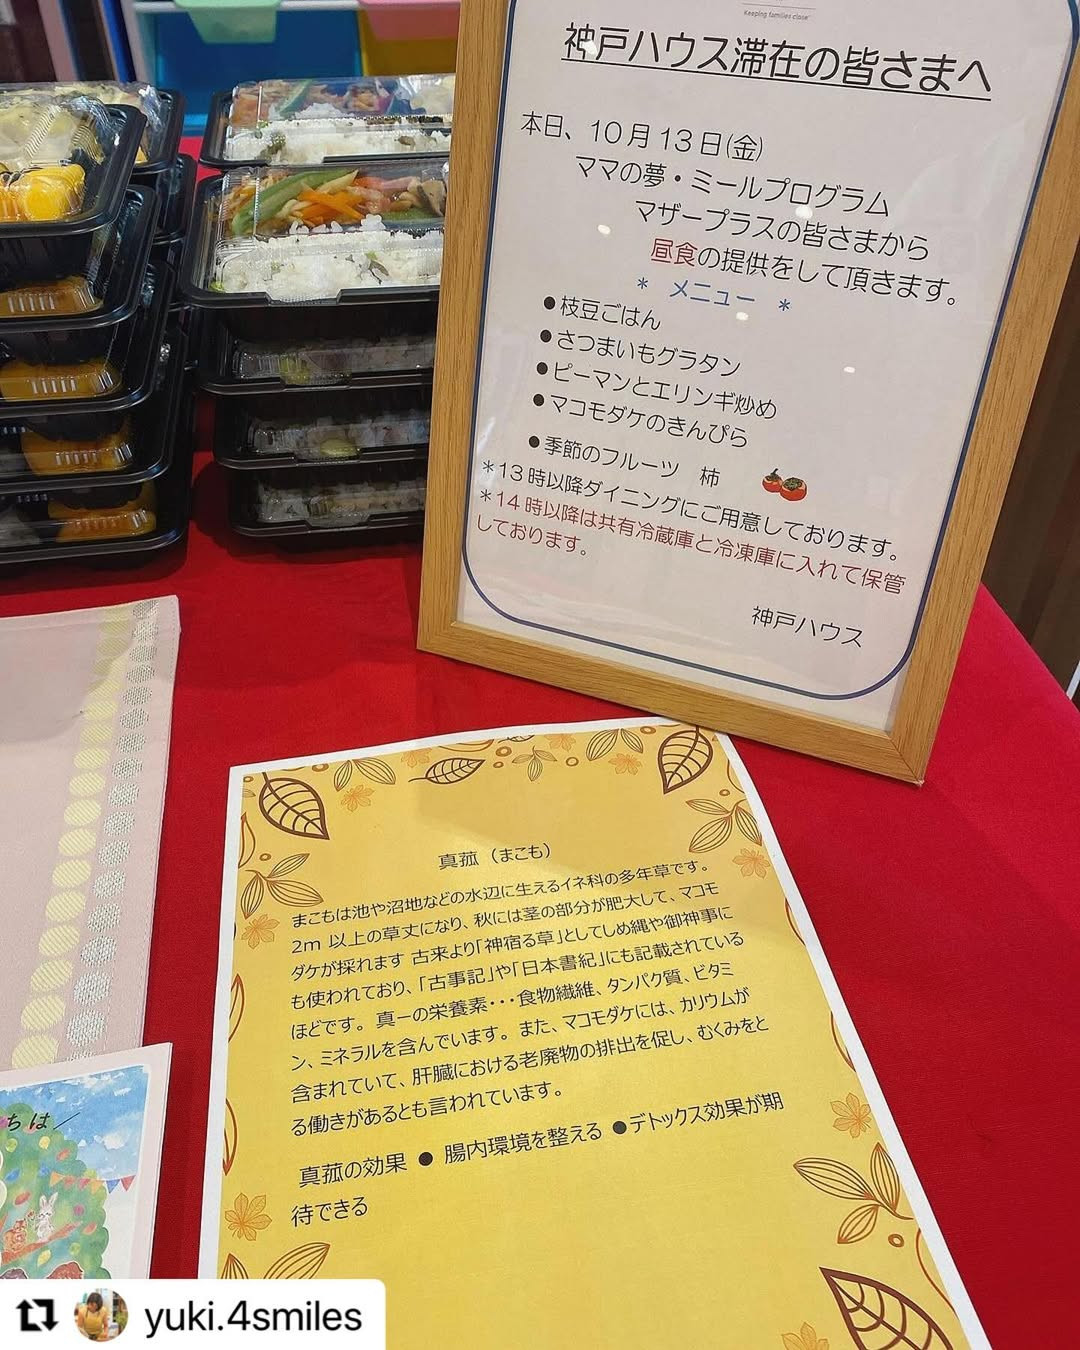 Keeping families close™
神戸ハウス滞在の皆さまへ
本日、10月13日(金)
ママの夢・ミールプログラム
マザープラスの皆さまから
昼食の提供をして頂きます。
* メニュー *
●枝豆ごはん
●さつまいもグラタン
●ピーマンとエリンギ炒め
●マコモダケのきんぴら
●季節のフルーツ 柿
*13時以降ダイニングにご用意しております。
*14時以降は共有冷蔵庫と冷凍庫に入れて保管
しております。
神戸ハウス
真菰(まこも)
まこもは池や沼地などの水辺に生えるイネ科の多年草です。
2m 以上の草丈になり、秋には茎の部分が肥大して、マコモ
ダケが採れます 古来より「神宿る草」としてしめ縄や御神事に
も使われており、「古事記」や「日本書紀」にも記載されている
ほどです。真一の栄養素・・・食物繊維、タンパク質、ビタミ
ン、ミネラルを含んでいます。また、マコモダケには、カリウムが
含まれていて、肝臓における老廃物の排出を促し、むくみをと
る働きがあるとも言われています。
真菰の効果 ● 腸内環境を整える ●デトックス効果が期
待できる
ちは/
yuki.4smiles